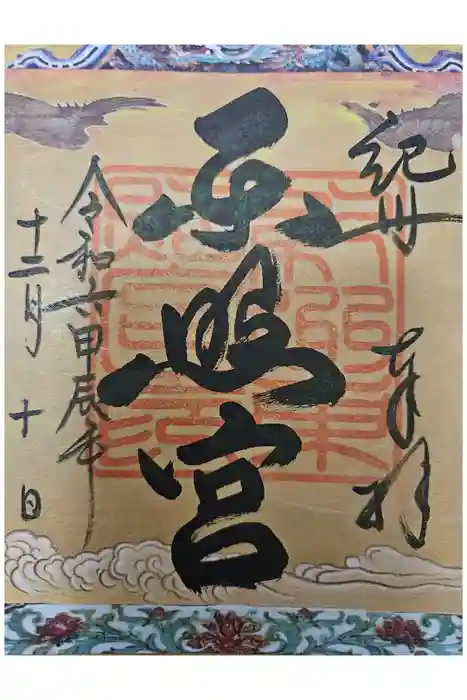 紀州 奉拝
東照宮
令和六甲辰年
十二月十日